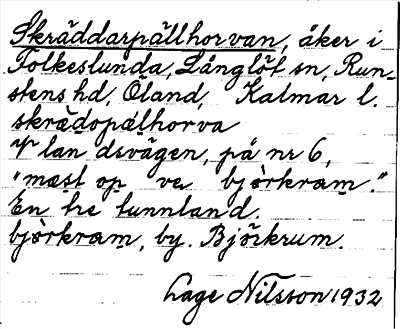 Skräddarpällhorvan, åker i
Folkeslunda, Långlöt sn, Run-
stens hd, Öland, Kalmar l.
skrädopälhorva
V landsvägen, på nr 6,
"mæst op ve bjòrkram."
En tre tunnland.
bjòrkram, by. Björkrum.
Lage Nilsson 1932